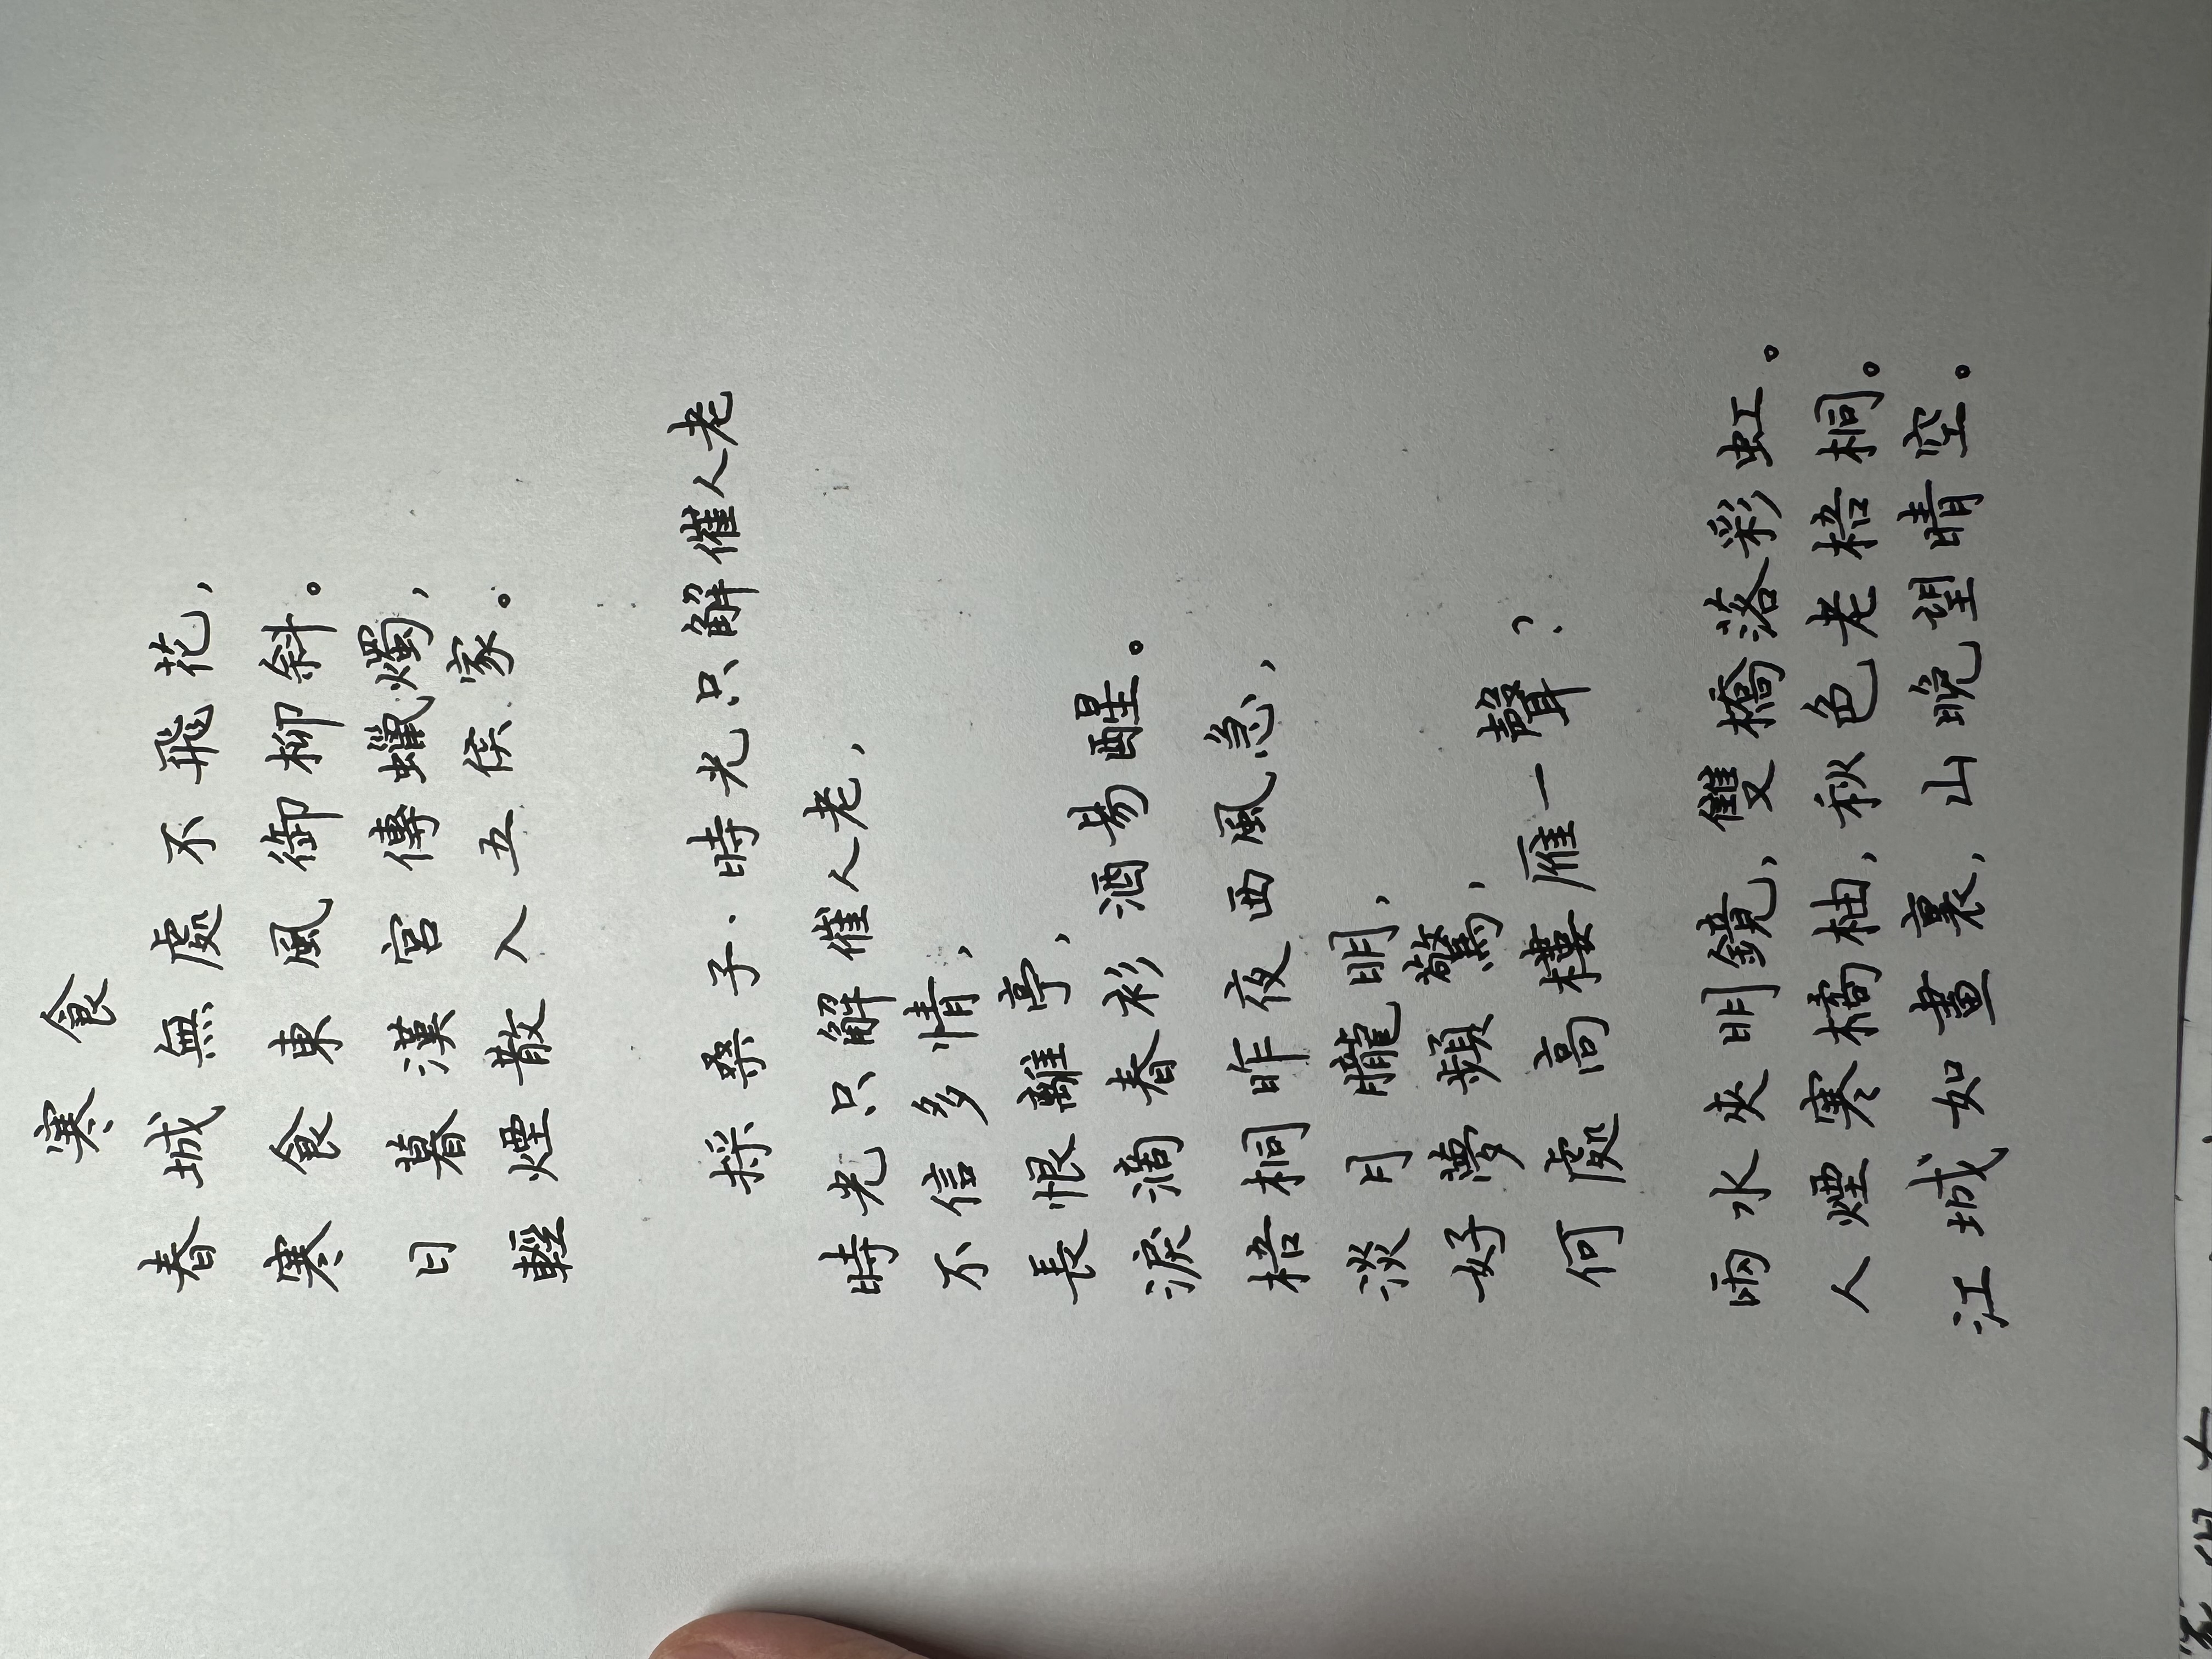 寒食
春城無處不飛花，
寒食東風御柳斜。
日暮漢宮傳蠟燭，
輕煙散入五侯家。
採桑子·時光只解催人老
時光只解催人老，
不信多情，
長恨離亭，
淚滴春衫酒易醒。
梧桐昨夜西風急，
淡月朧明，
好夢頻驚，
何處高樓雁一聲？
兩水夾明鏡，雙橋落彩虹。
人煙寒橘柚，秋色老梧桐。
江城如畫裏，山晚望晴空。